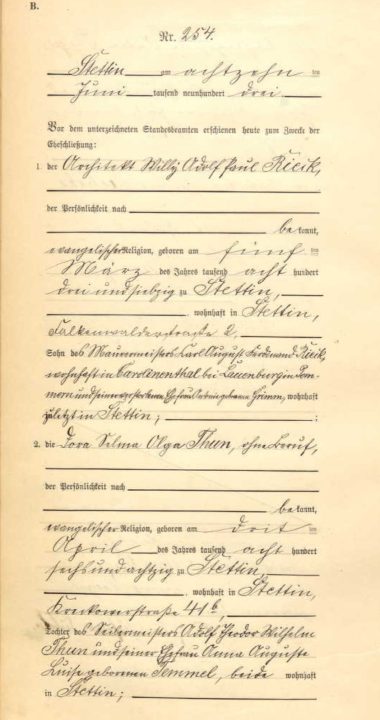 B.
Nr. 254.
Stettin am achtzehn ten
Juni tausend neunhundert drei
Vor dem unterzeichneten Standesbeamten erschienen heute zum Zweck der
Eheschließung:
1. der Architekt Willy Adolf Paul
der Persönlichkeit nach
be kannt,
evangelischer Religion, geboren am fünf ten
März des Jahres tausend acht hundert
drei und siebzig zu Stettin,
wohnhaft in Stettin,
Falkenwalderstraße 2,
Sohn des Maurermeisters Karl August Ferdinand
wohnhaft in Carolinenthal bei Lauenburg in Pom-
mern und seiner Ehefrau geborene Grimm, wohnhaft
zuletzt in Stettin;
2. die Dora Selma Olga Thun, ohne Beruf,
der Persönlichkeit nach
be kannt,
evangelischer Religion, geboren am drit ten
April des Jahres tausend acht hundert
sechsundachtzig zu Stettin
wohnhaft in Stettin,
Kreckowerstraße 41b,
Tochter des Seilermeisters Adolf Theodor Wilhelm
Thun und seiner Ehefrau Anna Auguste
Luise geborenen Temmel, beide wohnhaft
in Stettin;